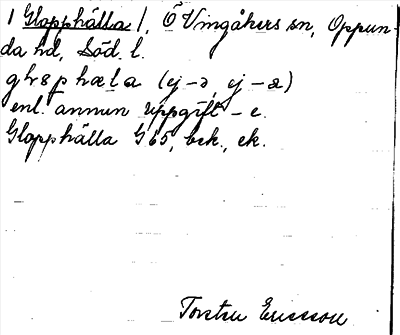 1 Glopphälla /, Ö Vingåkers sn, Oppun-
da hd, Söd. l.
glɤp hæla (ej -ə, ej -æ)
enl. annan uppgift -e.
Glopphälla G 65, bek., ek.
Torsten Ericsson